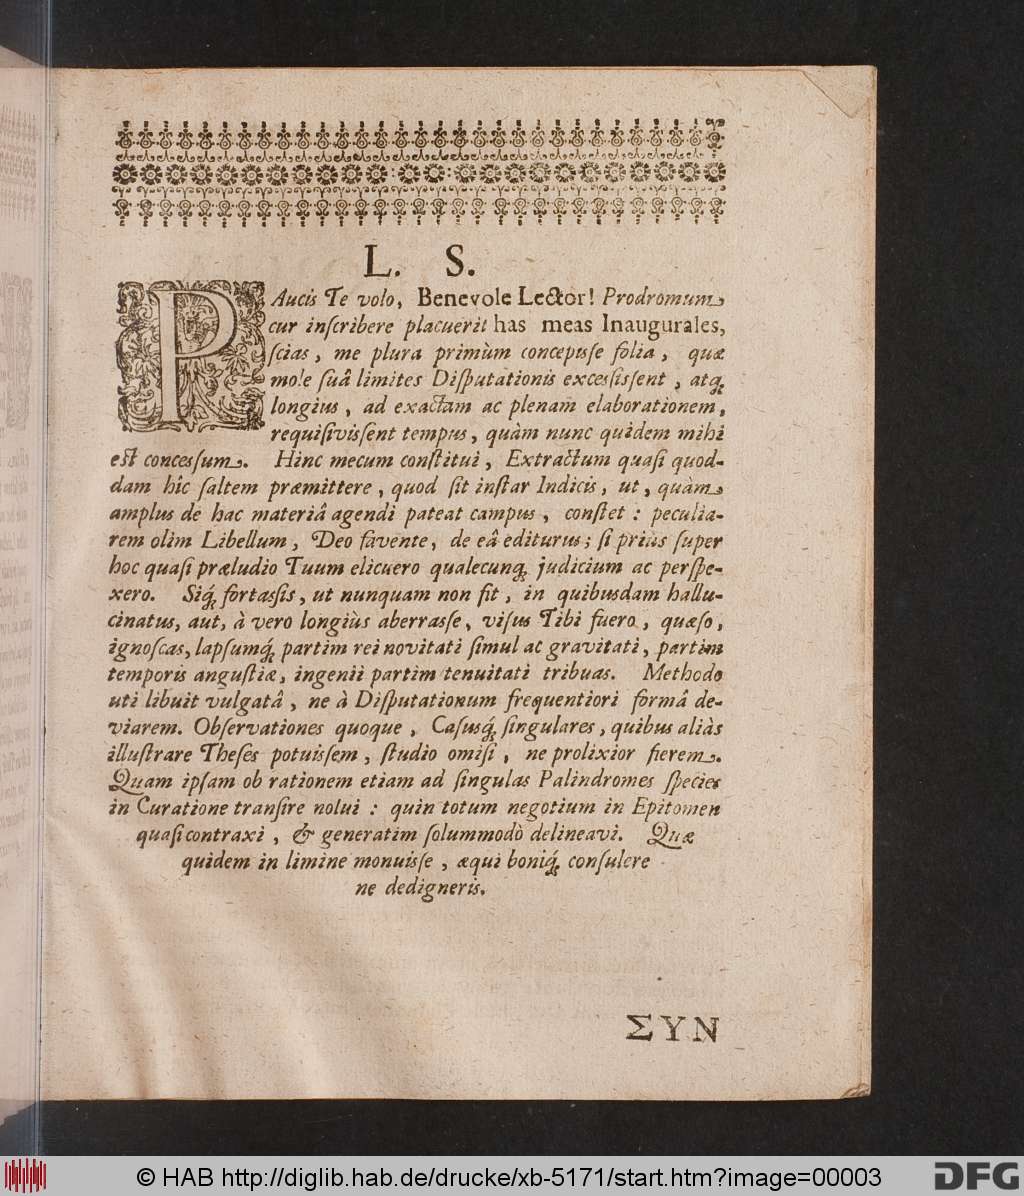 L. S.
PAucis Te volo, Benevole Lector! Prodromum
cur inſcribere placuerit has meas Inaugurales,
ſcias, me plura primùm concepiſſe folia, quæ
mole ſuâ limites Diſputationis exceſſiſſent, atq́;
longius, ad exactam ac plenam elaborationem,
requiſiviſſent tempus, quàm nunc quidem mihi
eſt conceſſum. Hinc mecum conſtitui, Extractum quaſi quod-
dam hîc ſaltem præmittere, quod ſit inſtar Indicis, ut, quàm
amplus de hac materiâ agendi pateat campus, conſtet: peculia-
rem olim Libellum, Deo favente, de eâ editurus; ſi priùs ſuper
hoc quaſi præludio Tuum elicuero qualecunq; judicium ac perſpe-
xero. Siq́; fortaſſis, ut nunquam non fit, in quibusdam hallu-
cinatus, aut, à vero longiùs aberraſſe, viſus Tibi fuero, quæſo,
ignoſcas, lapſumq́; partim rei novitati ſimul ac gravitati, partim
temporis anguſtiæ, ingenii partim tenuitati tribuas. Methodo
uti libuit vulgatâ, ne à Diſputationum frequentiori formâ de-
viarem. Obſervationes quoque, Caſusq́; ſingulares, quibus aliàs
illuſtrare Theſes potuiſſem, ſtudio omiſi, ne prolixior fierem.
Quam ipſam ob rationem etiam ad ſingulas Palindromes ſpecies
in Curatione tranſire nolui: quin totum negotium in Epitomen
quaſi contraxi, & generatim ſolummodò delineavi. Quæ
quidem in limine monuiſſe, æqui boniq́; conſulere
ne dedigneris.
ΣΥΝ
© HAB http://diglib.hab.de/drucke/xb-5171/start.htm?image=00003
DFG